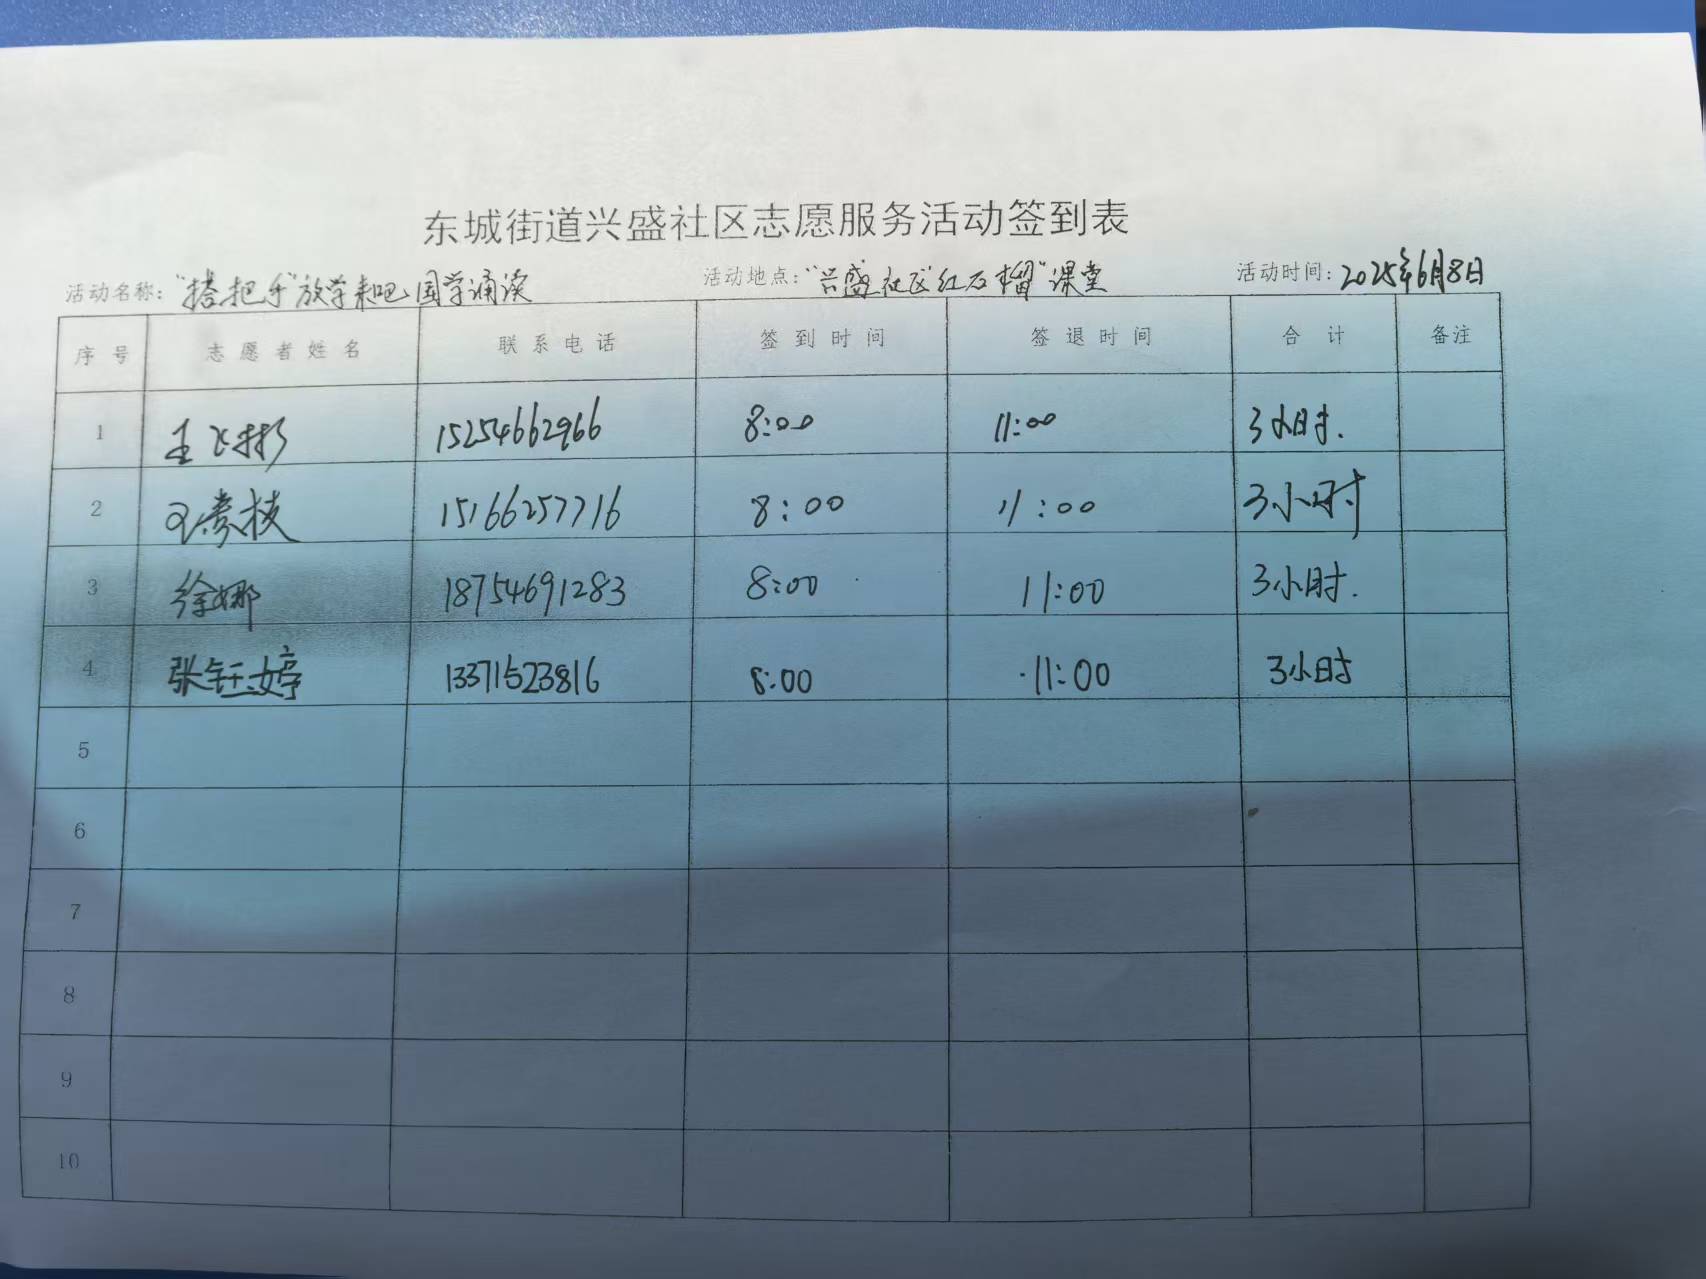 东城街道兴盛社区志愿服务活动签到表
活动名称：“搭把手”放学来吧 国学诵读 活动地点：“兴盛社区红石榴”课堂 活动时间：2025年6月8日
序号 志愿者姓名 联系电话 签到时间 签退时间 合计 备注
1 王飞彬 15254662966 8:00 11:00 3小时.
2 王 枝 15166257716 8:00 11:00 3小时
3 徐娜 18754691283 8:00 11:00 3小时.
4 张钰婷 13371523816 8:00 11:00 3小时
5
6
7
8
9
10